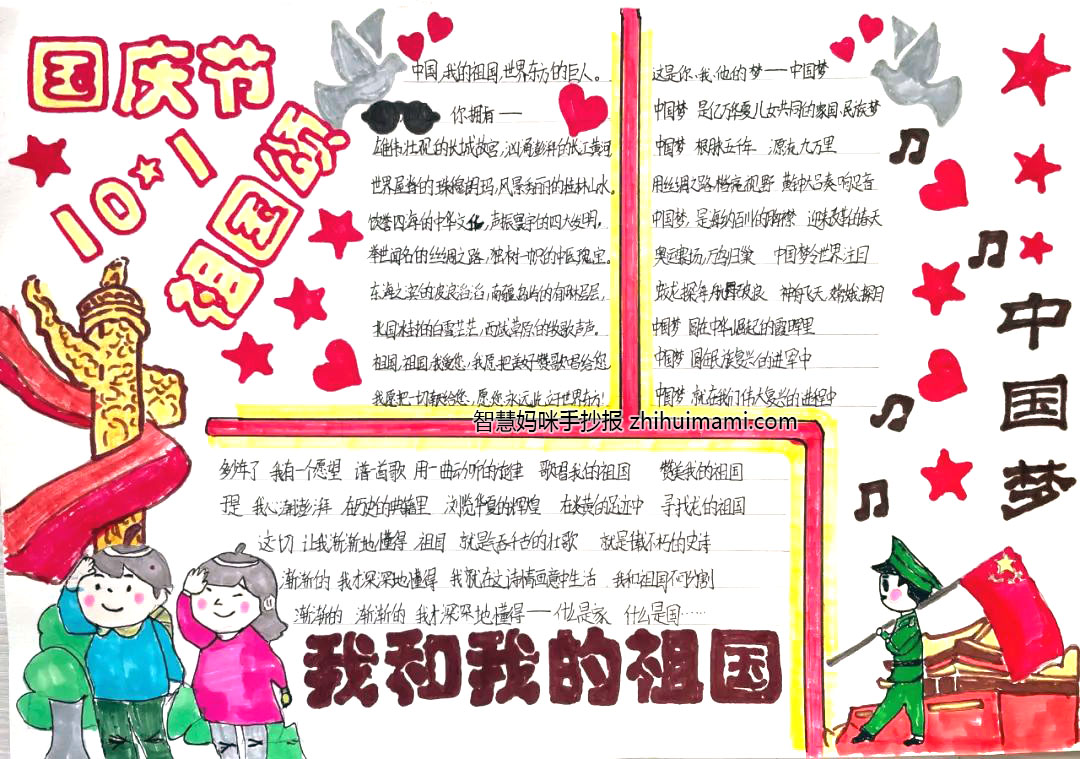 国庆节
10★1
祖国颂
中国,我的祖国,世界东方的巨人。
你拥有——
雄伟壮观的长城故宫,汹涌澎湃的长江黄河
世界屋脊的珠穆朗玛,风景秀丽的桂林山水。
的中华文化,声振寰宇的四大发明,
举世闻名的丝绸之路,独树一帜的中医瑰宝。
北国的白雪茫茫,西域草原的牧歌声声。
祖国,祖国,我爱您,我愿把美好赞歌唱给您
我愿把一切献给您,愿您永远屹立于世界东方!
这是你、我、他的梦——中国梦
中国梦 是亿万华夏儿女共同的家国、民族梦
中国梦 根脉五千年 源流九万里
用丝绸之路 视野
中国梦,是海纳百川的胸襟 迎来的春天
奥运赛场,万鸟归巢 中国梦令世界注目
神舟飞天 嫦娥探月
中国梦 圆在中华崛起的霞晖里
中国梦 圆在复兴的进军中
中国梦 就在我们伟大复兴的进程中
智慧妈咪手抄报 zhihuimami.com
多少年了 我有一个愿望 谱一首歌 用一曲动听的旋律 歌唱我的祖国 赞美我的祖国
于是 我心潮澎湃 在历史的典籍里 浏览华夏的辉煌 在炎黄的足迹中 寻找龙的祖国
这一切 让我渐渐地懂得 祖国 就是千古的壮歌 就是不朽的史诗
渐渐的 我才深深地懂得 我就在这诗情画意中生活 我和祖国不可分割
渐渐的 渐渐的 我才深深地懂得——什么是家 什么是国……
我和我的祖国
中国梦